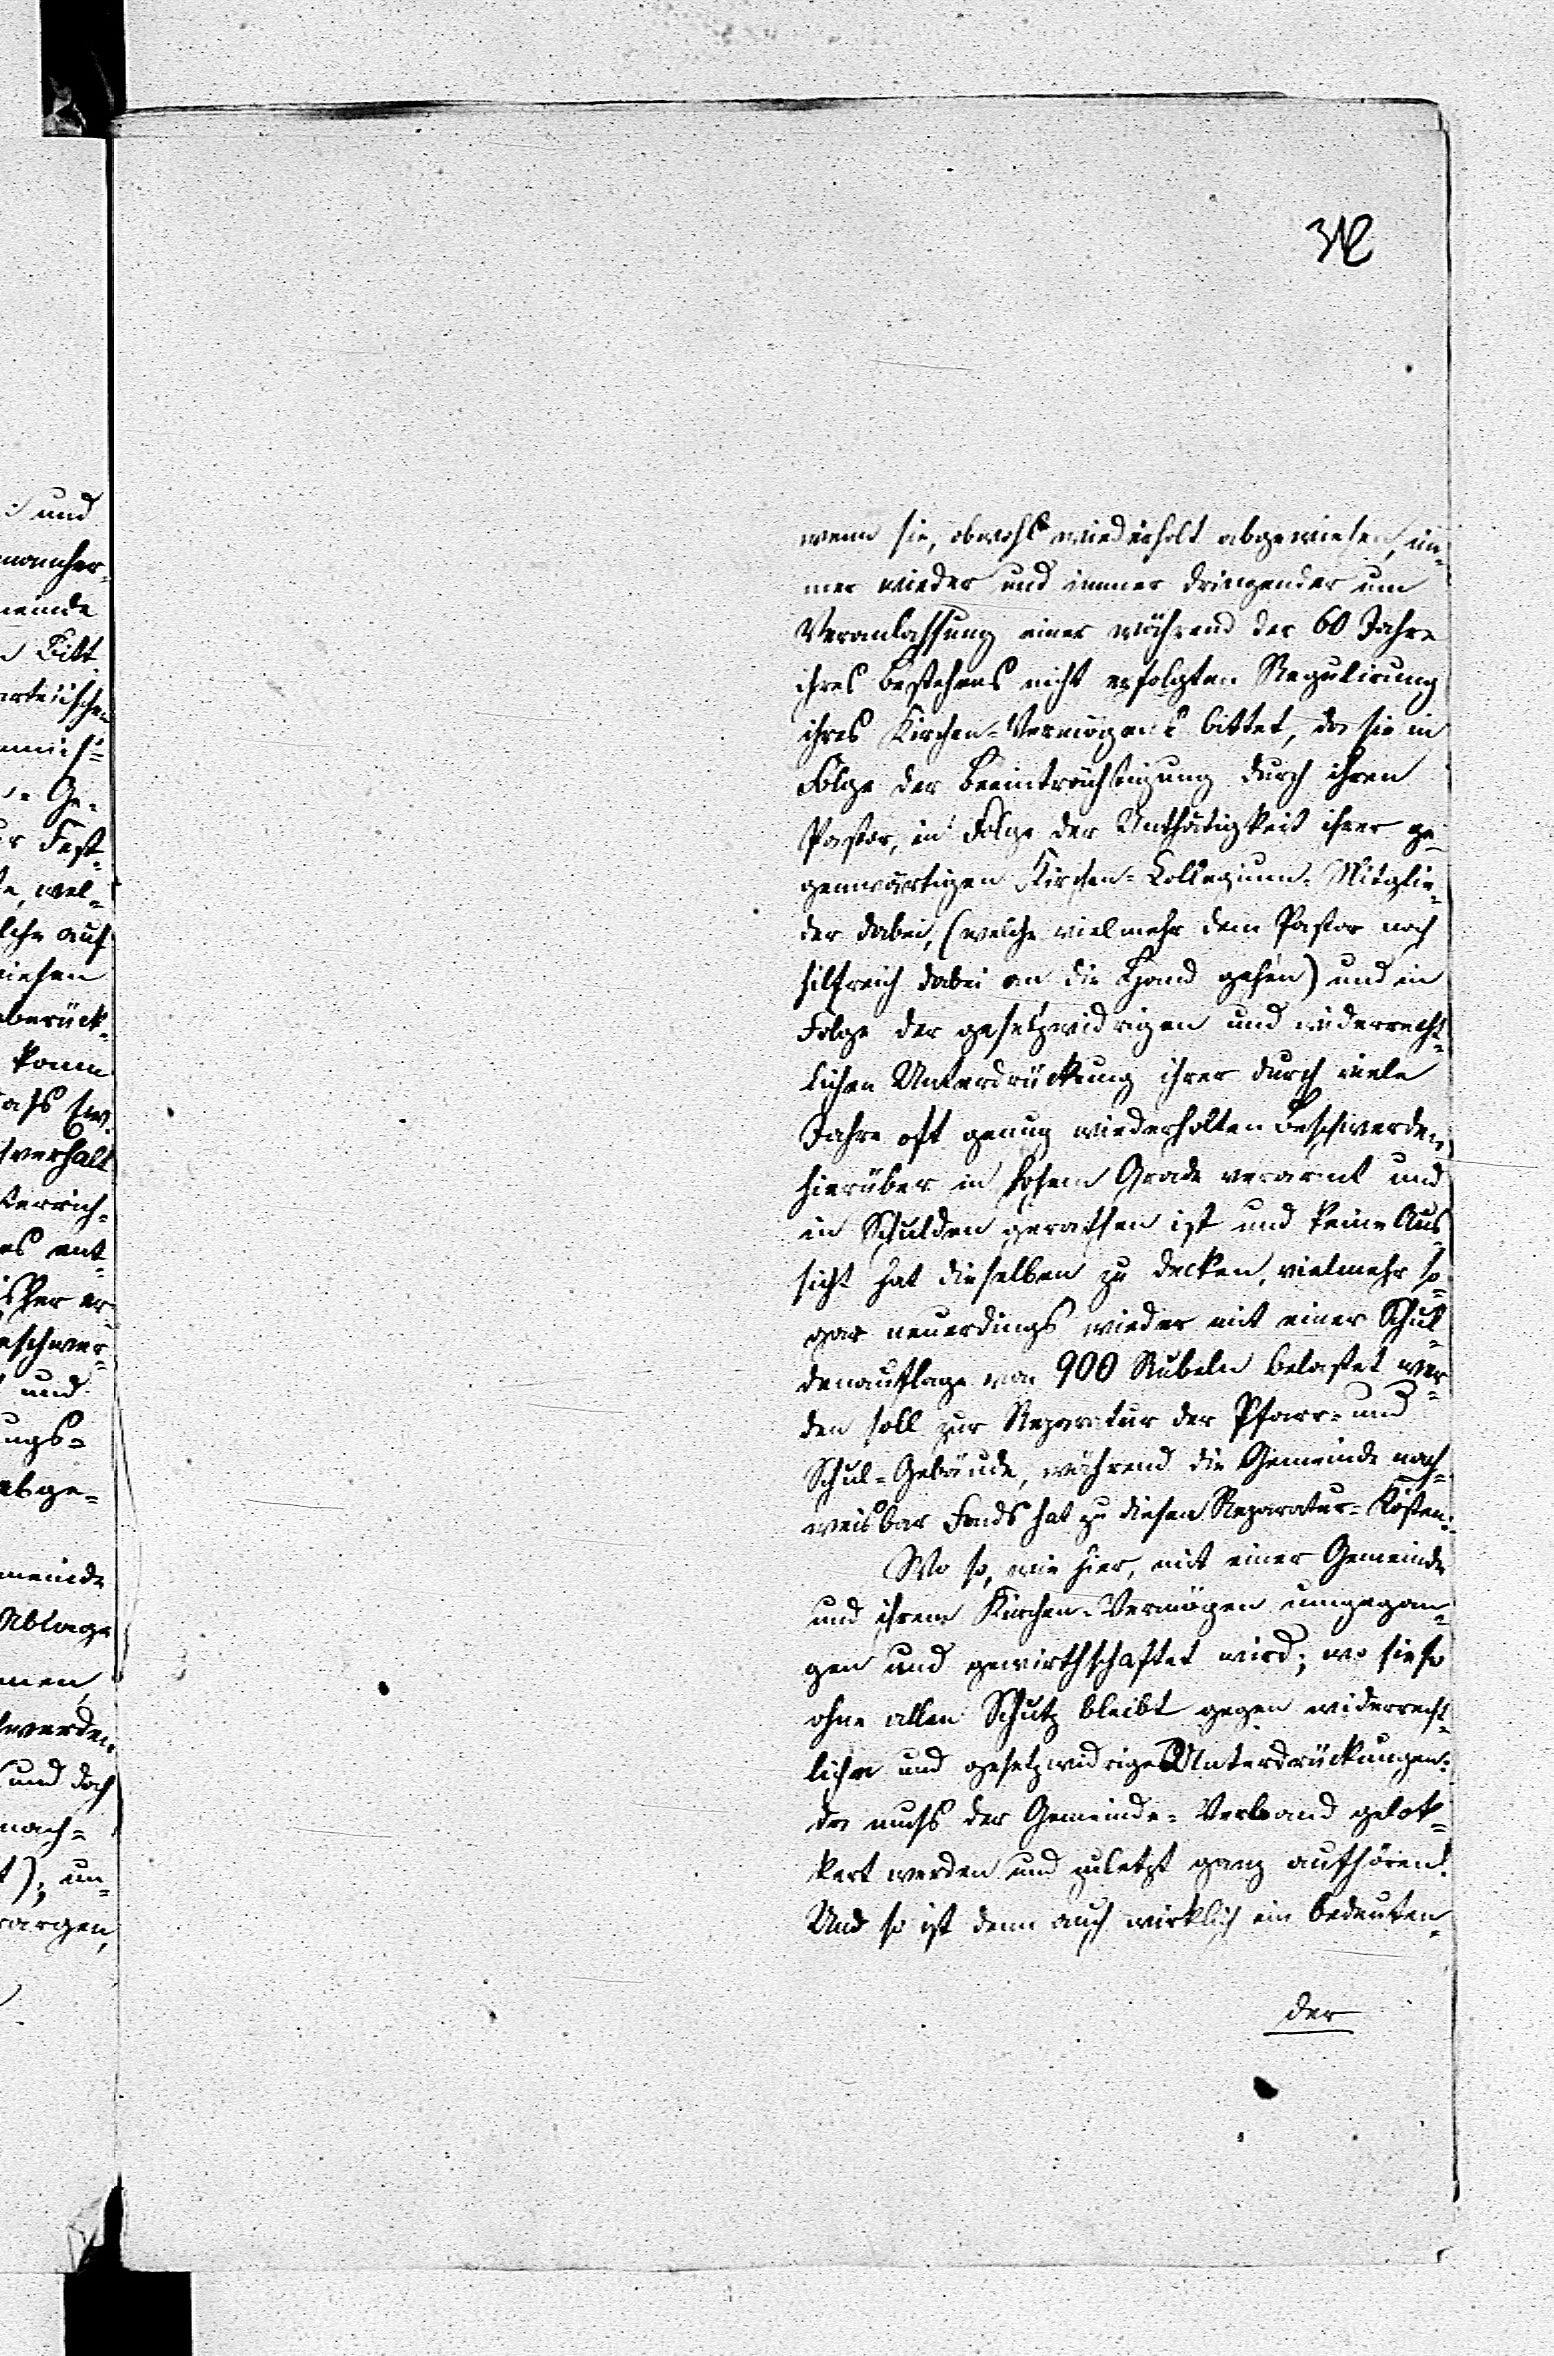 312
: und
mancher-
meinde
Bitt-
arteiischen
- Ge-
r Fest-
te, wel-
lche auf
iesen
berück-
kann
dass Ew.
verhalt
terrich-
es ent-
isher er-
eschwer-
und
ungs-
abge-
meinde
Ablage
men,
werden,
und doch
nach-
t); un-
argen,
wenn sie, obwohl wiederholt abgewiesen, im-
mer wieder und immer dringender um
Veranlassung einer während der 60 Jahre
ihres Bestehens nicht erfolgten Regulirung
ihres Kirchen-Vermögens bittet, da sie in
Folge der Beeinträchtigung durch ihren
Pastor, in Folge der Unthätigkeit ihrer ge-
genwärtigen Kirchen-Collegium-Mitglie-
der dabei, (welche vielmehr dem Pastor noch
hilfreich dabei an die Hand gehen) und in
Folge der gesetzwidrigen und widerrecht-
lichen Unterdrückung ihrer durch viele
Jahre oft genug wiederholten Beschwerden
hierüber in hohem Grade verarmt und
in Schulden gerathen ist und keine Aus-
sicht hat dieselben zu decken, vielmehr so-
gar neuerdings wieder mit einer Schul-
denauflage von 900 Rubeln belastet wer-
den soll zur Reparatur der Pfarr- und
Schul-Gebäude, während die Gemeinde nach-
weisbar Fonds hat zu diesen Reparatur-Kosten.
Wo so, wie hier, mit einer Gemeinde
und ihrem Kirchen-Vermögen umgegan-
gen und gewirthschaftet wird; wo sie so
ohne allen Schutz bleibt gegen widerrecht-
liche und gesetzwidrige Unterdrückungen:
da muß der Gemeinde-Verband gelok-
kert werden und zuletzt ganz aufhören!
Und so ist denn auch wirklich ein bedeuten-
der